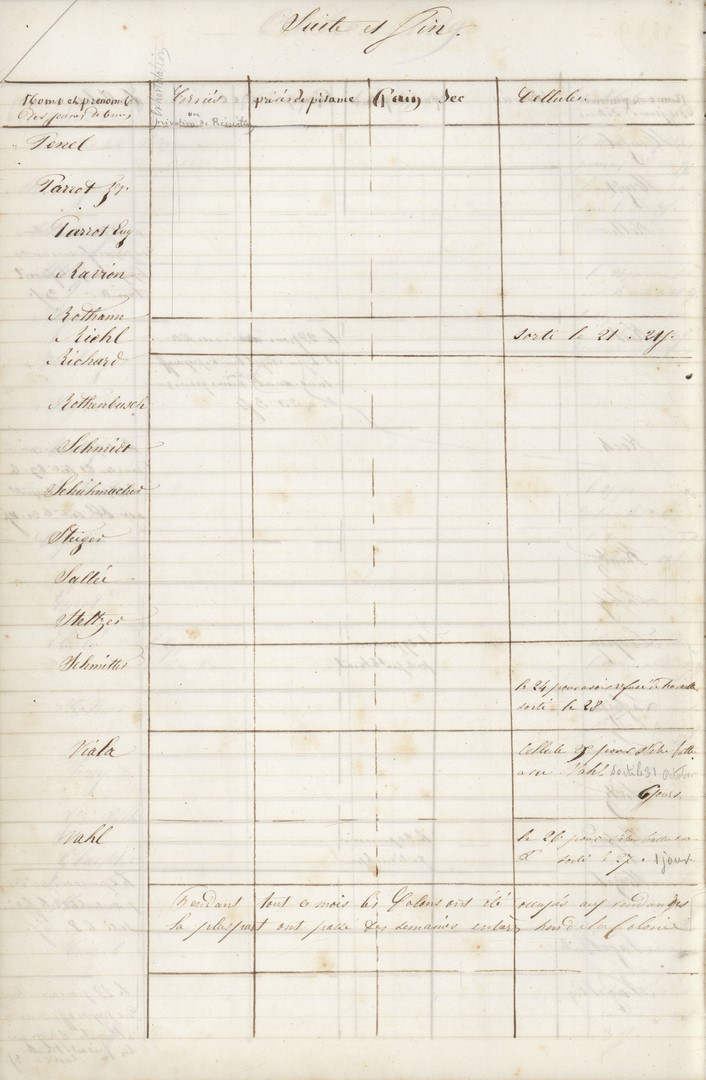 Suite et Fin.
Noms et prénoms des jeunes detenus
Corvées
ou privation de Récréation
privés de pitance
Pain Sec
Cellules
Penel
Parrot
Parrot Eug
Ravion
Rothann
Riehl sorti le 21.
Richard
Rothenbusch
Schmidt
Schuhmacher
Steiger
Sallée
Steltzer
Schmitter
le 24 pour avoir refusé de travailler
sorti le 28
Viala
Cellule pour s'être battu
avec Vahl. Sorti le 31 Octobre
6 jours.
Vahl
le 26 pour s'être battu
sorti le 27. 1 jour
Pendant tout ce mois les Colons ont été occupés aux vendanges
la pluspart ont passé des semaines entières hors de la Colonie